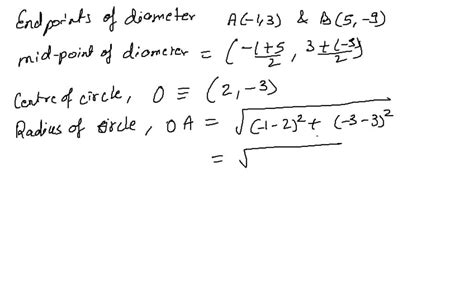 Endpoints of diameter A(-1,3) & B(5,-9)
mid-point of diameter = (-1+5/2, 3+(-9)/2)
Centre of circle, O ≡ (2,-3)
Radius of circle, OA = √(-1-2)² + (-3-3)²
= √